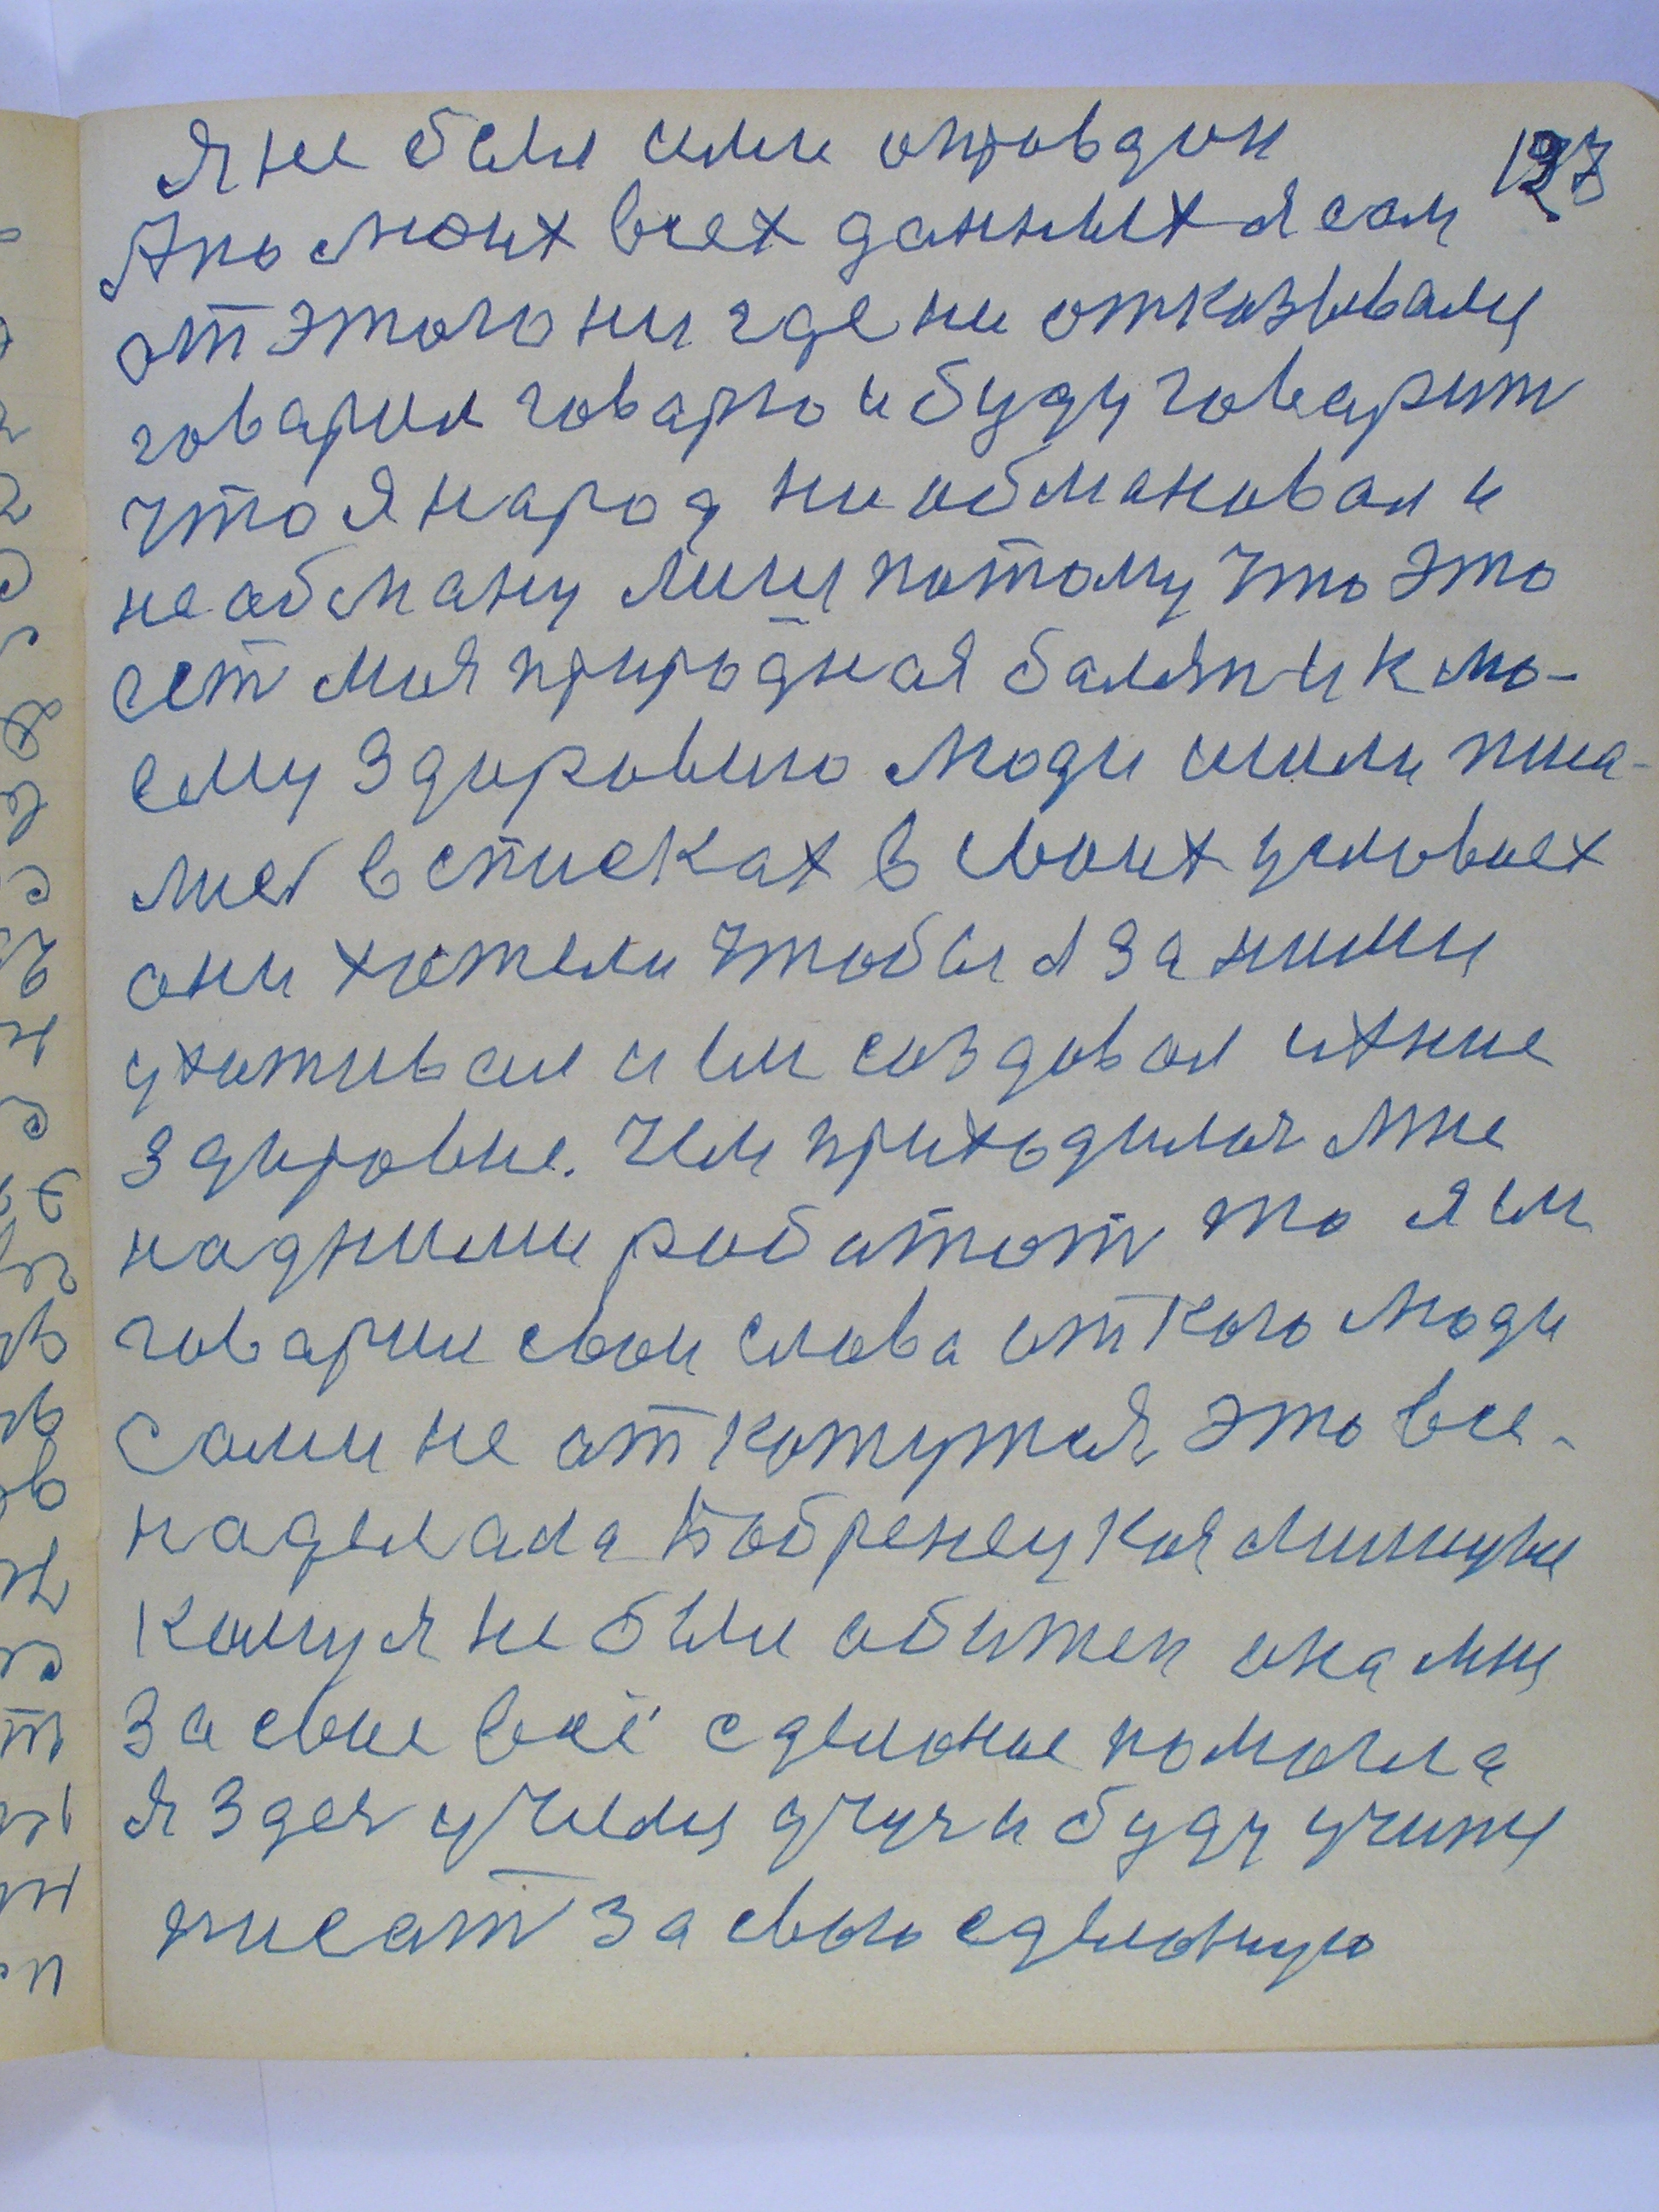 Я не был ими оправдан
197
А по моих всех данных я сам
от этого ни где ни отказывалц
говарил говарю и буду говарит
что я народ ни обмановал и
не обману лиш потому что это
ест моя природная баляти к мо-
ему здоровию люди шили писа-
лис в списках в своих условиех
они хотели чтобы я за ними
ухаживал и им создовал ихние
здоровие. Чем приходилос мне
надними работат то я им
говарил свои слова от кого люди
сами не откажутся это все
наделала Бобренецкая
кому я не был обижен она мни
за свие всё сделоное помогла
Я здес училц учус и буду учитц
писат за свою сделоную